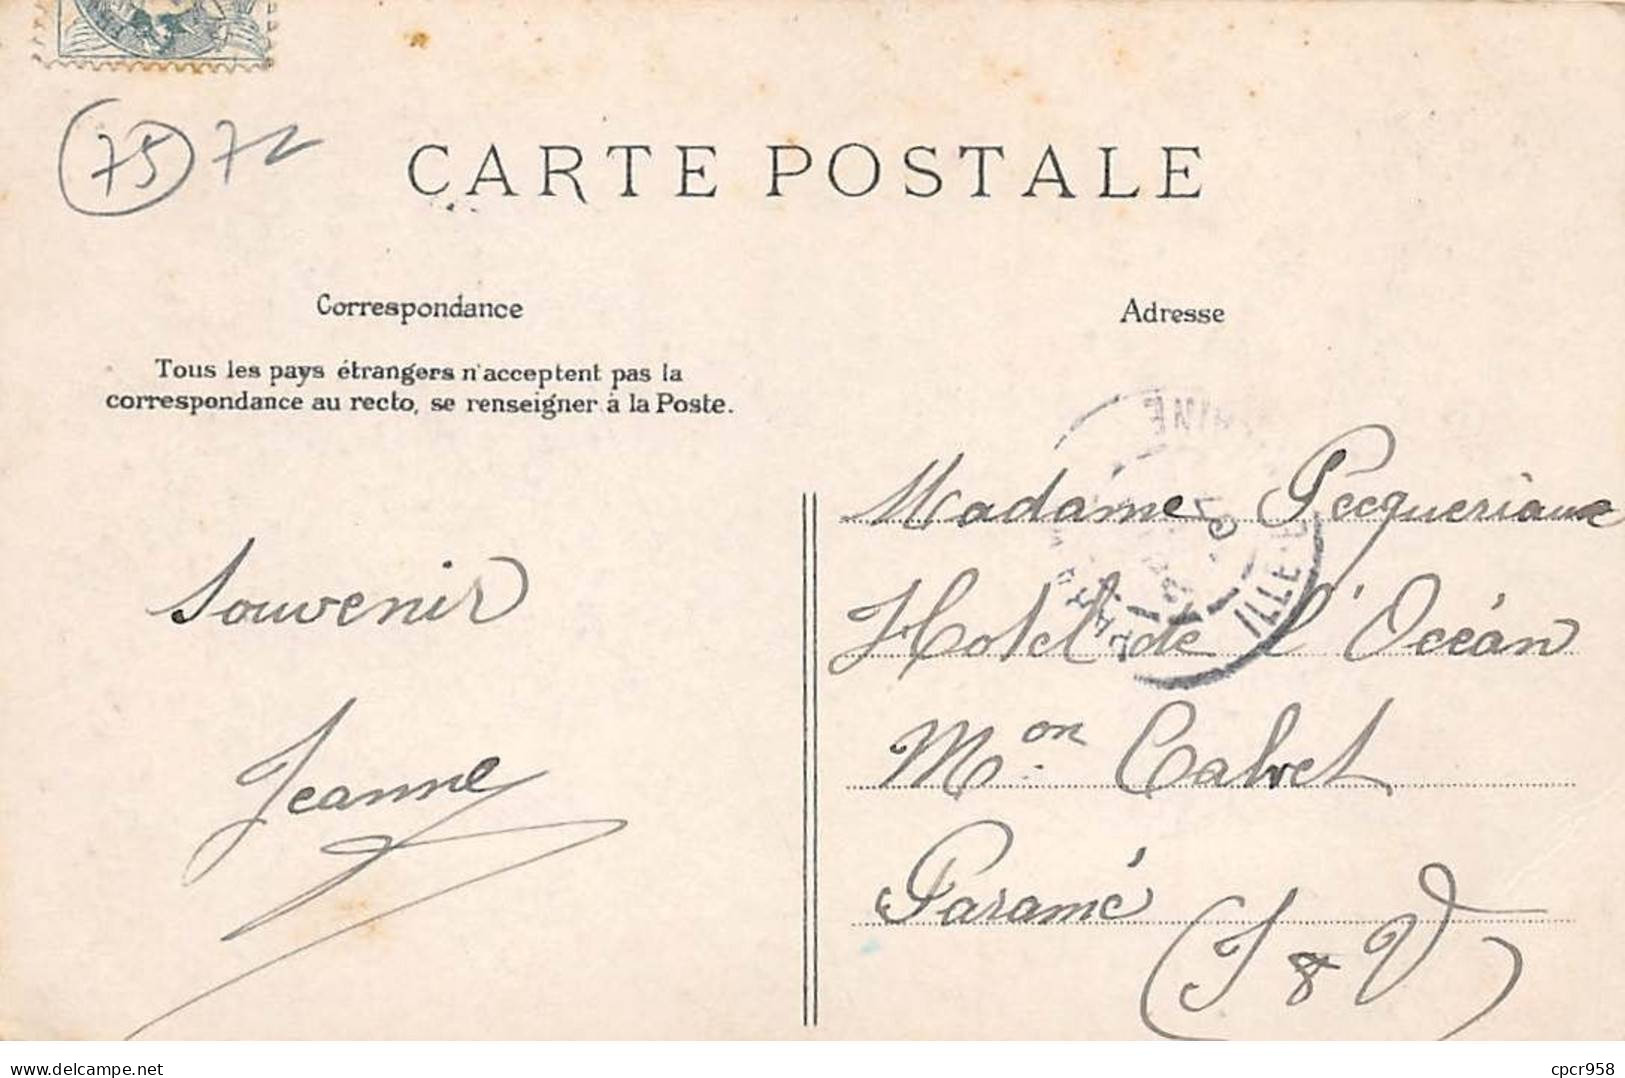 75 72
CARTE POSTALE
Correspondance
Tous les pays étrangers n'acceptent pas la
correspondance au recto, se renseigner à la Poste.
Souvenir
Jeanne
Adresse
Madame Pecqueriaux
Hotel de l'Océan
Mon Calvet
Paramé
(I & V)
ILLE
delcampe.net
cpcr958